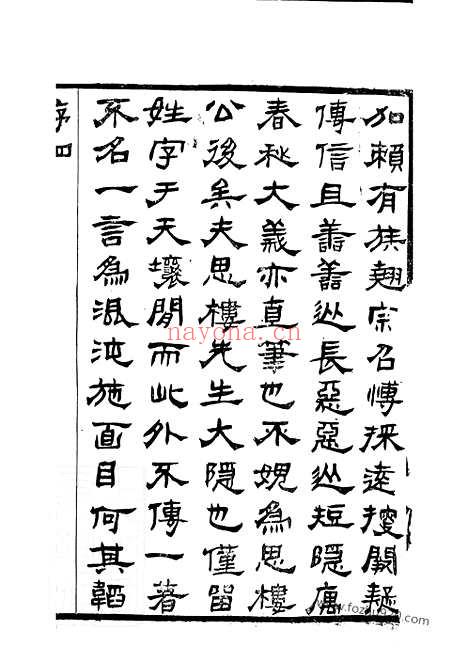 加賴有族翅宗名博採遠搜闕疑
傳信且善善從長惡惡從短隱寓
春秋大義亦直筆也不媿為思樓
公後矣夫思樓先生大隱也僅留
姓字于天壤閒而此外不傳一著
不名一言為混沌施面目何其韜
序四
nayona.cn
www.fozang.org.cn